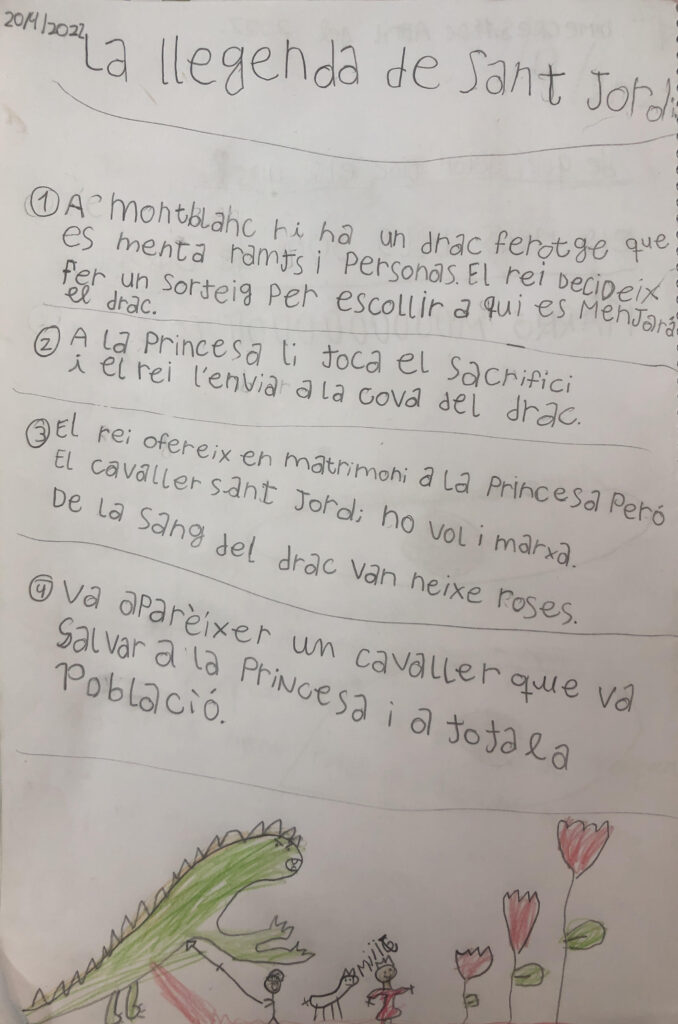 20/4/2022
La llegenda de Sant Jordi
① A montblanc hi ha un drac ferotge que
es menta ramts i personas. El rei decideix
fer un sorteig per escollir a qui es menjará
el drac.
② A la princesa li toca el sacrifici
i el rei l'enviar a la cova del drac.
③ El rei ofereix en matrimoni a la princesa peró
El cavaller sant Jordi; no vol i marxa.
De la sang del drac van neixe roses.
④ Va aparèixer un cavaller que va
salvar a la princesa i a tota la
població.